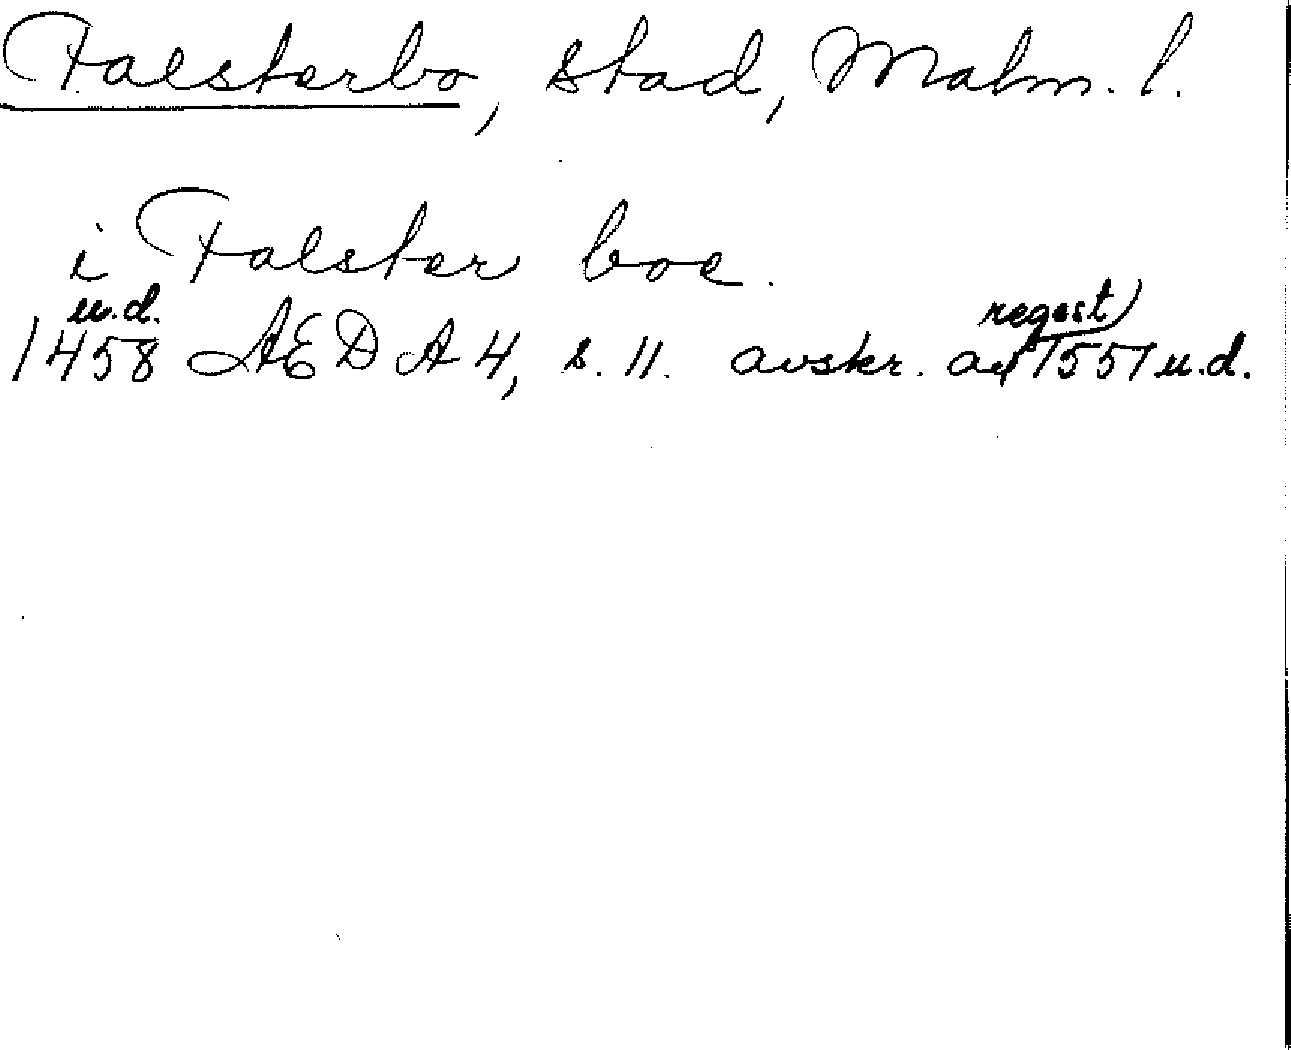 Falsterbo, stad, Malm. l.
i Falster boe.
u.d.
1458 ÆDA 4, s. 11. avskr. av regest 1551 u.d.